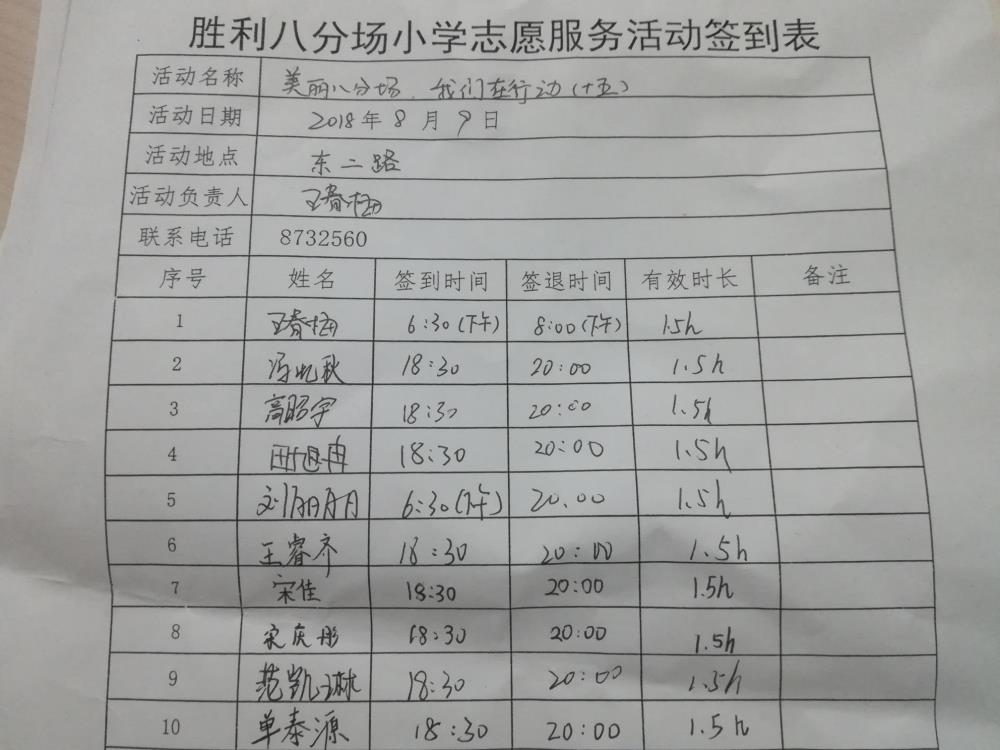 胜利八分场小学志愿服务活动签到表
活动名称 美丽八分场,我们在行动(十五)
活动日期 2018年8月9日
活动地点 东二路
活动负责人 王春梅
联系电话 8732560
序号 姓名 签到时间 签退时间 有效时长 备注
1 王春梅 6:30(下午) 8:00(下午) 1.5h
2 冯忆秋 18:30 20:00 1.5h
3 高昭宇 18:30 20:00 1.5h
4 18:30 20:00 1.5h
5 6:30(下午) 20.00 1.5h
6 王睿齐 18:30 20:00 1.5h
7 宋佳 18:30 20:00 1.5h
8 宋庆彤 18:30 20:00 1.5h
9 范凯琳 18:30 20:00 1.5h
10 单泰源 18:30 20:00 1.5h